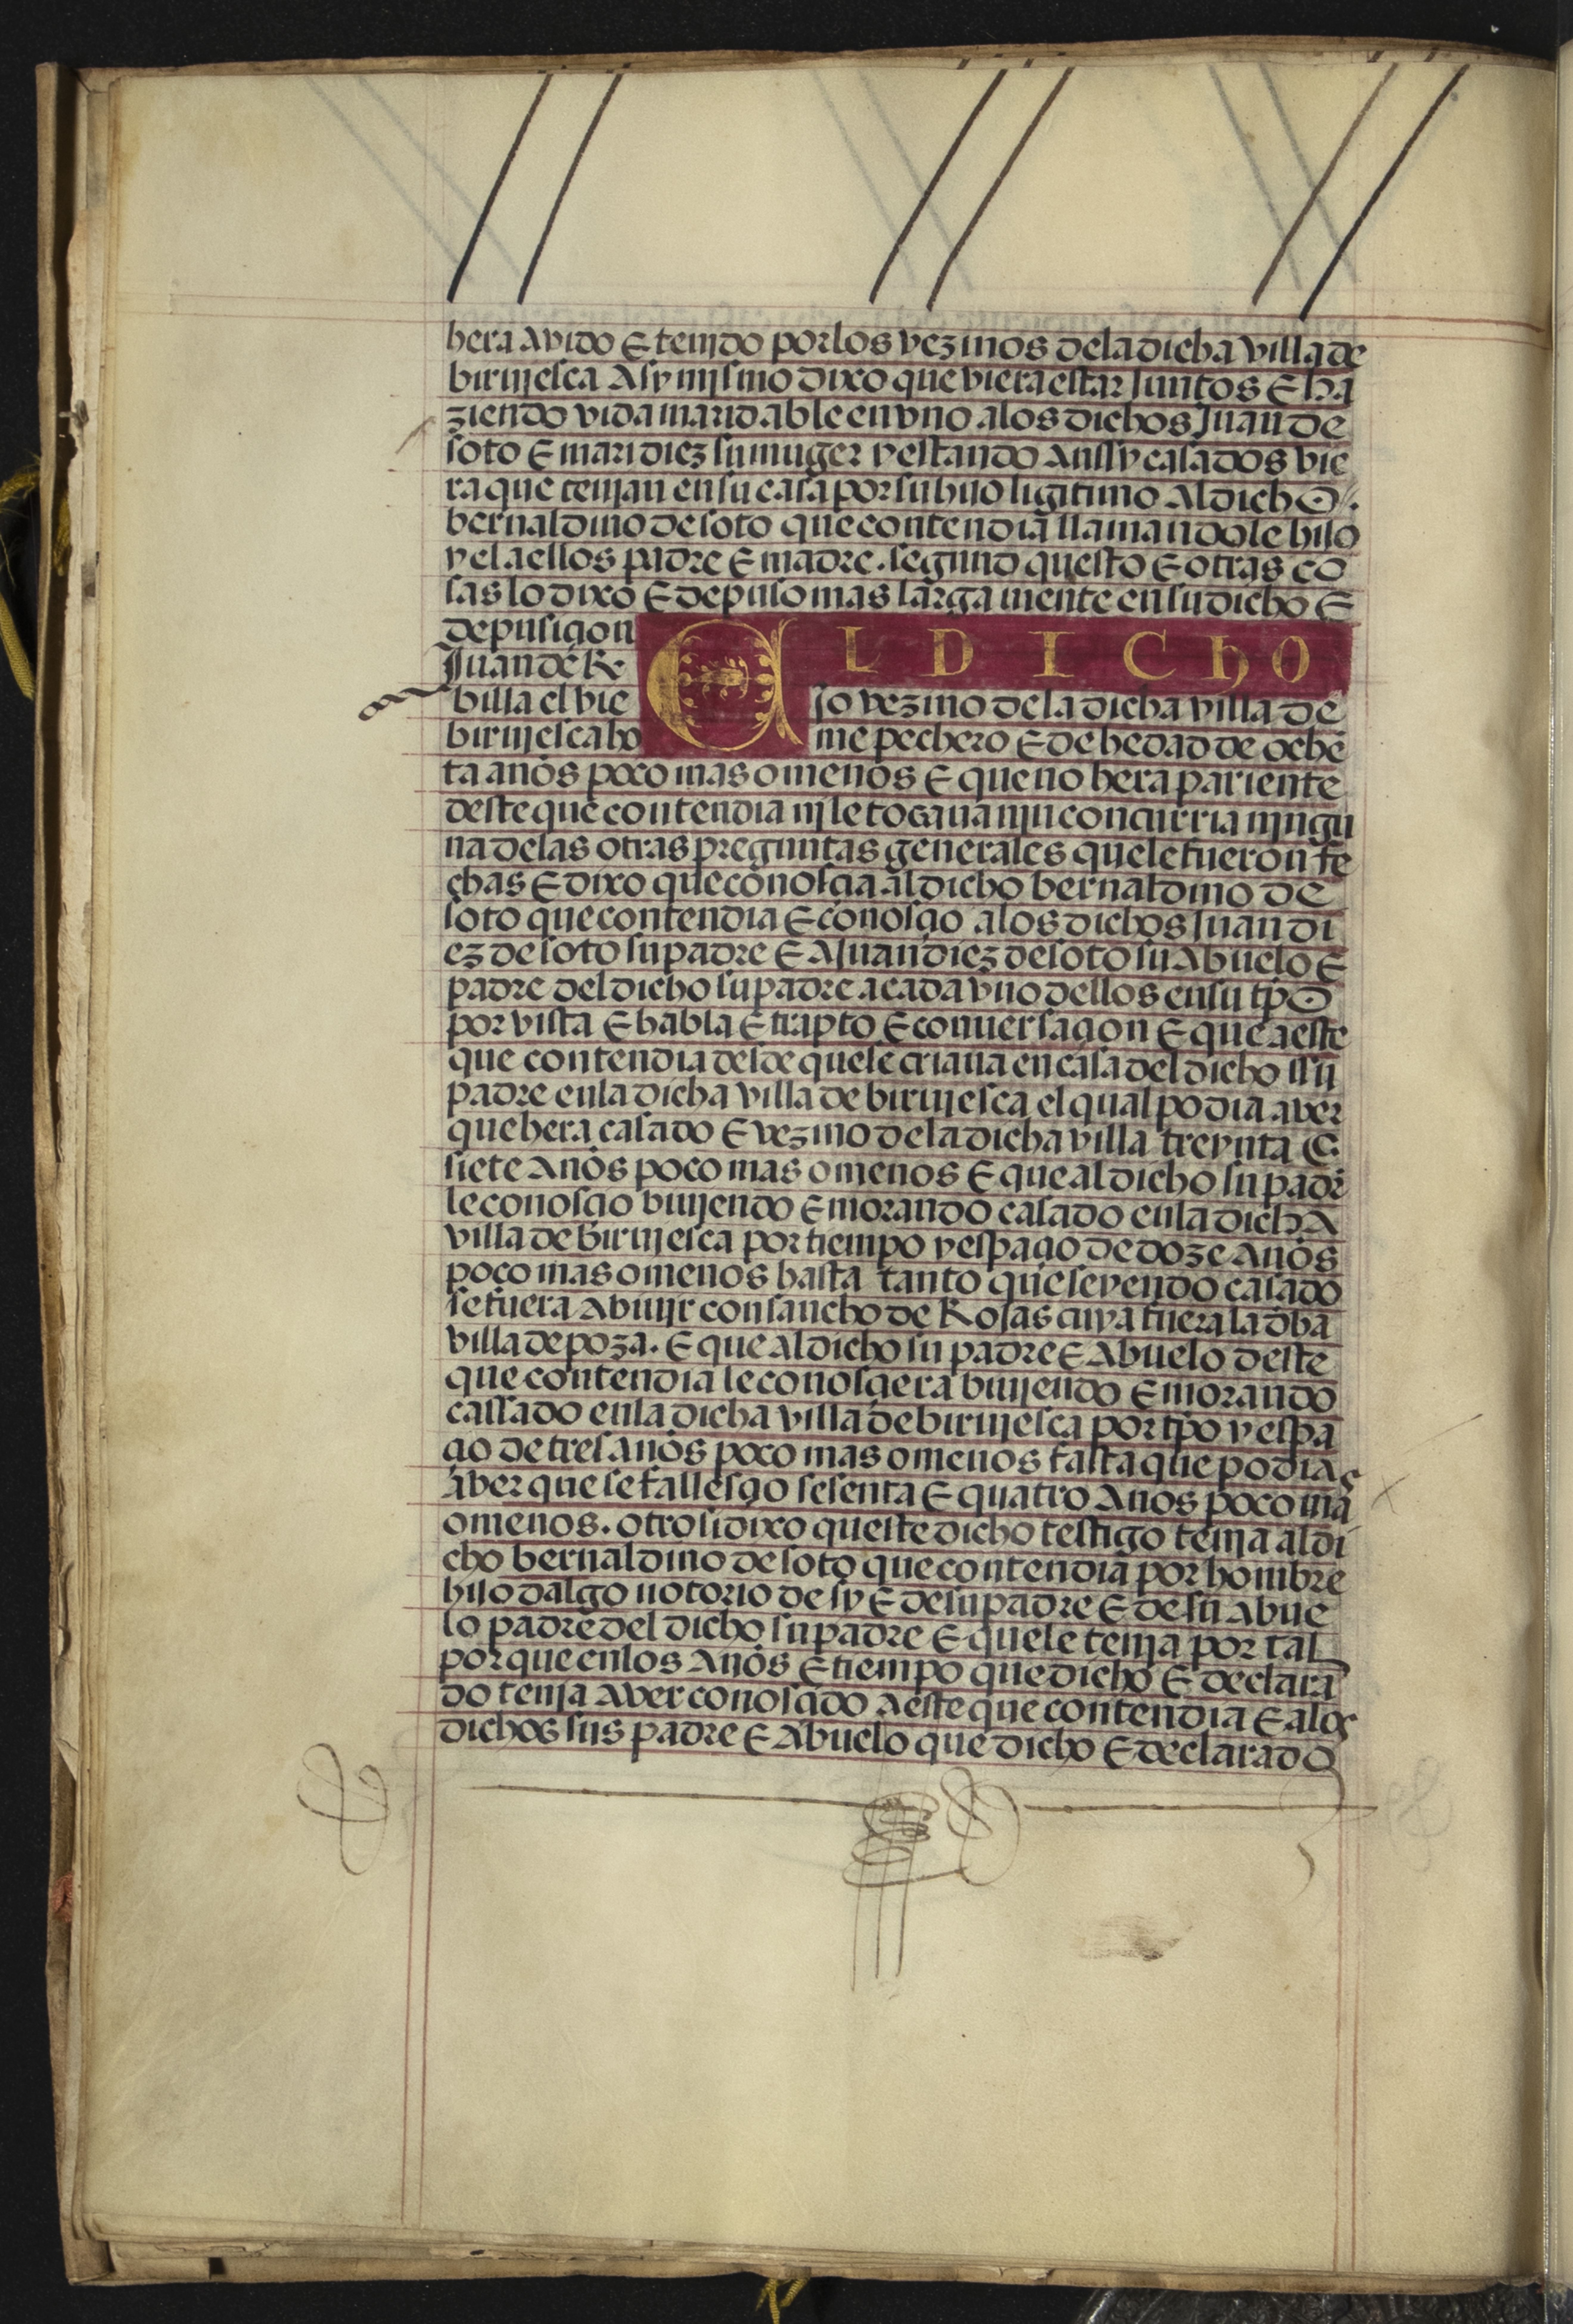 hera avido E tenjdo por los vezinos dela dicha villa de
birvjesca Asy mjsmo dixo que viera estar Juntos E ha
ziendo vida maridable en vno alos dichos Juan de
soto E mari diez su muger y estando Anssy casados vie
ra que tenjan en su casa por su hijo ligitimo Al dicho
bernaldino de soto que contendia llamandole hijo
y el a ellos padre E madre. segund questo E otras co
sas lo dixo E depuso mas larga mente en su dicho E
depusiçion EL DICHO
Juan de Re
billa el vie jo vezino dela dicha villa de
birvjesca ho me pechero E de hedad de oche
ta años poco mas o menos E que no hera pariente
deste que contendia nj le tocaua njn concurria njngu
na delas otras preguntas generales que le fueron fe
chas E dixo que conosçia al dicho bernaldino de
soto que contendia E conosçio alos dichos Juan di
ez de soto su padre E A Juan diez de soto su Abuelo E
padre del dicho su padre a cada vno dellos en su tpo
por vista E habla E trapto E conuersaçion E que a este
que contendia desde quele criaua en casa del dicho ssu
padre en la dicha villa de birvjesca el qual podia aver
que hera casado E vezino dela dicha villa treynta E
siete Años poco mas o menos E que al dicho su padr
le conosçio biujendo E morando casado enla dicha
villa de birvjesca por tiempo y espaçio de doze Años
poco mas o menos hasta tanto que seyendo casado
se fuera A biujr con sancho de Rojas cuya fuera la dha
villa de poza. E que al dicho su padre E Abuelo deste
que contendia le conosçiera biujendo E morando
cassado enla dicha villa de birvjesca por tpo y espa
çio de tres años poco mas o menos fasta que podia
aver que se fallesçio sesenta E quatro Años poco mas
o menos. otrosi dixo queste dicho testigo tenja al di
cho bernaldino de soto que contendia por hombre
hijo dalgo notorio de sy E de su padre E de su Abue
lo padre del dicho su padre E quele tenja por tal
por que enlos Años E tiempo que dicho E declara
do tenja Aver conosçido a este que contendia E alos
dichos sus padre E Abuelo que dicho E declarado